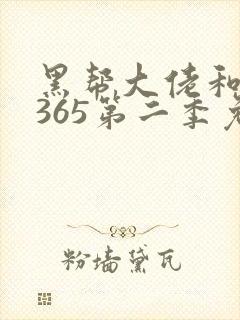 黑帮大佬和
365第二季
粉墙黛瓦